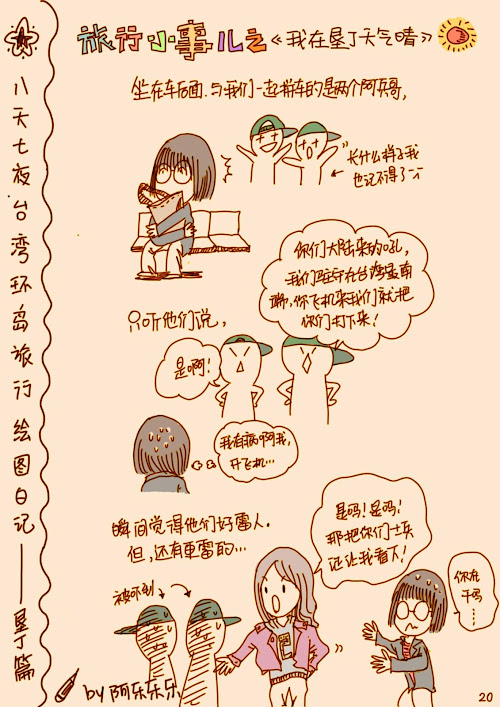 旅行小事儿之《我在垦丁天气晴》
八天七夜台湾环岛旅行 绘图日记——垦丁篇
坐在车后面.与我们一起拼车的是两个阿兵哥,
长什么样子我
也记不得了
只听他们说,
你们大陆来的吼,
我们驻守在台湾最南
端,你飞机来我们就把
你们打下来!
是啊!
我有病啊我,
开飞机...
瞬间觉得他们好雷人.
但,还有更雷的...
是吗!是吗!
那把你们士兵
证让我看下!
你在
干吗
......
被吓到
by阿乐乐乐
20